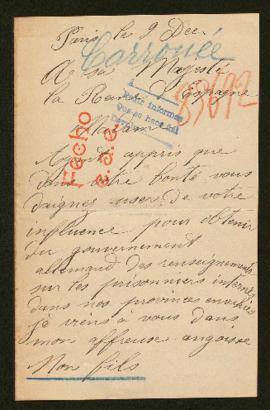 Paris le 9 Dec.
Carrouée
A sa Majesté
la Reine d'Espagne
83692
Madame
Fecho
e.a.e.
Ayant appris que
dans votre bonté vous
daignez user de votre
influence pour obtenir
du gouvernement
allemand des renseignements
sur les prisonniers internés
dans nos provinces envahies
je viens à vous dans
mon affreuse angoisse
Mon fils